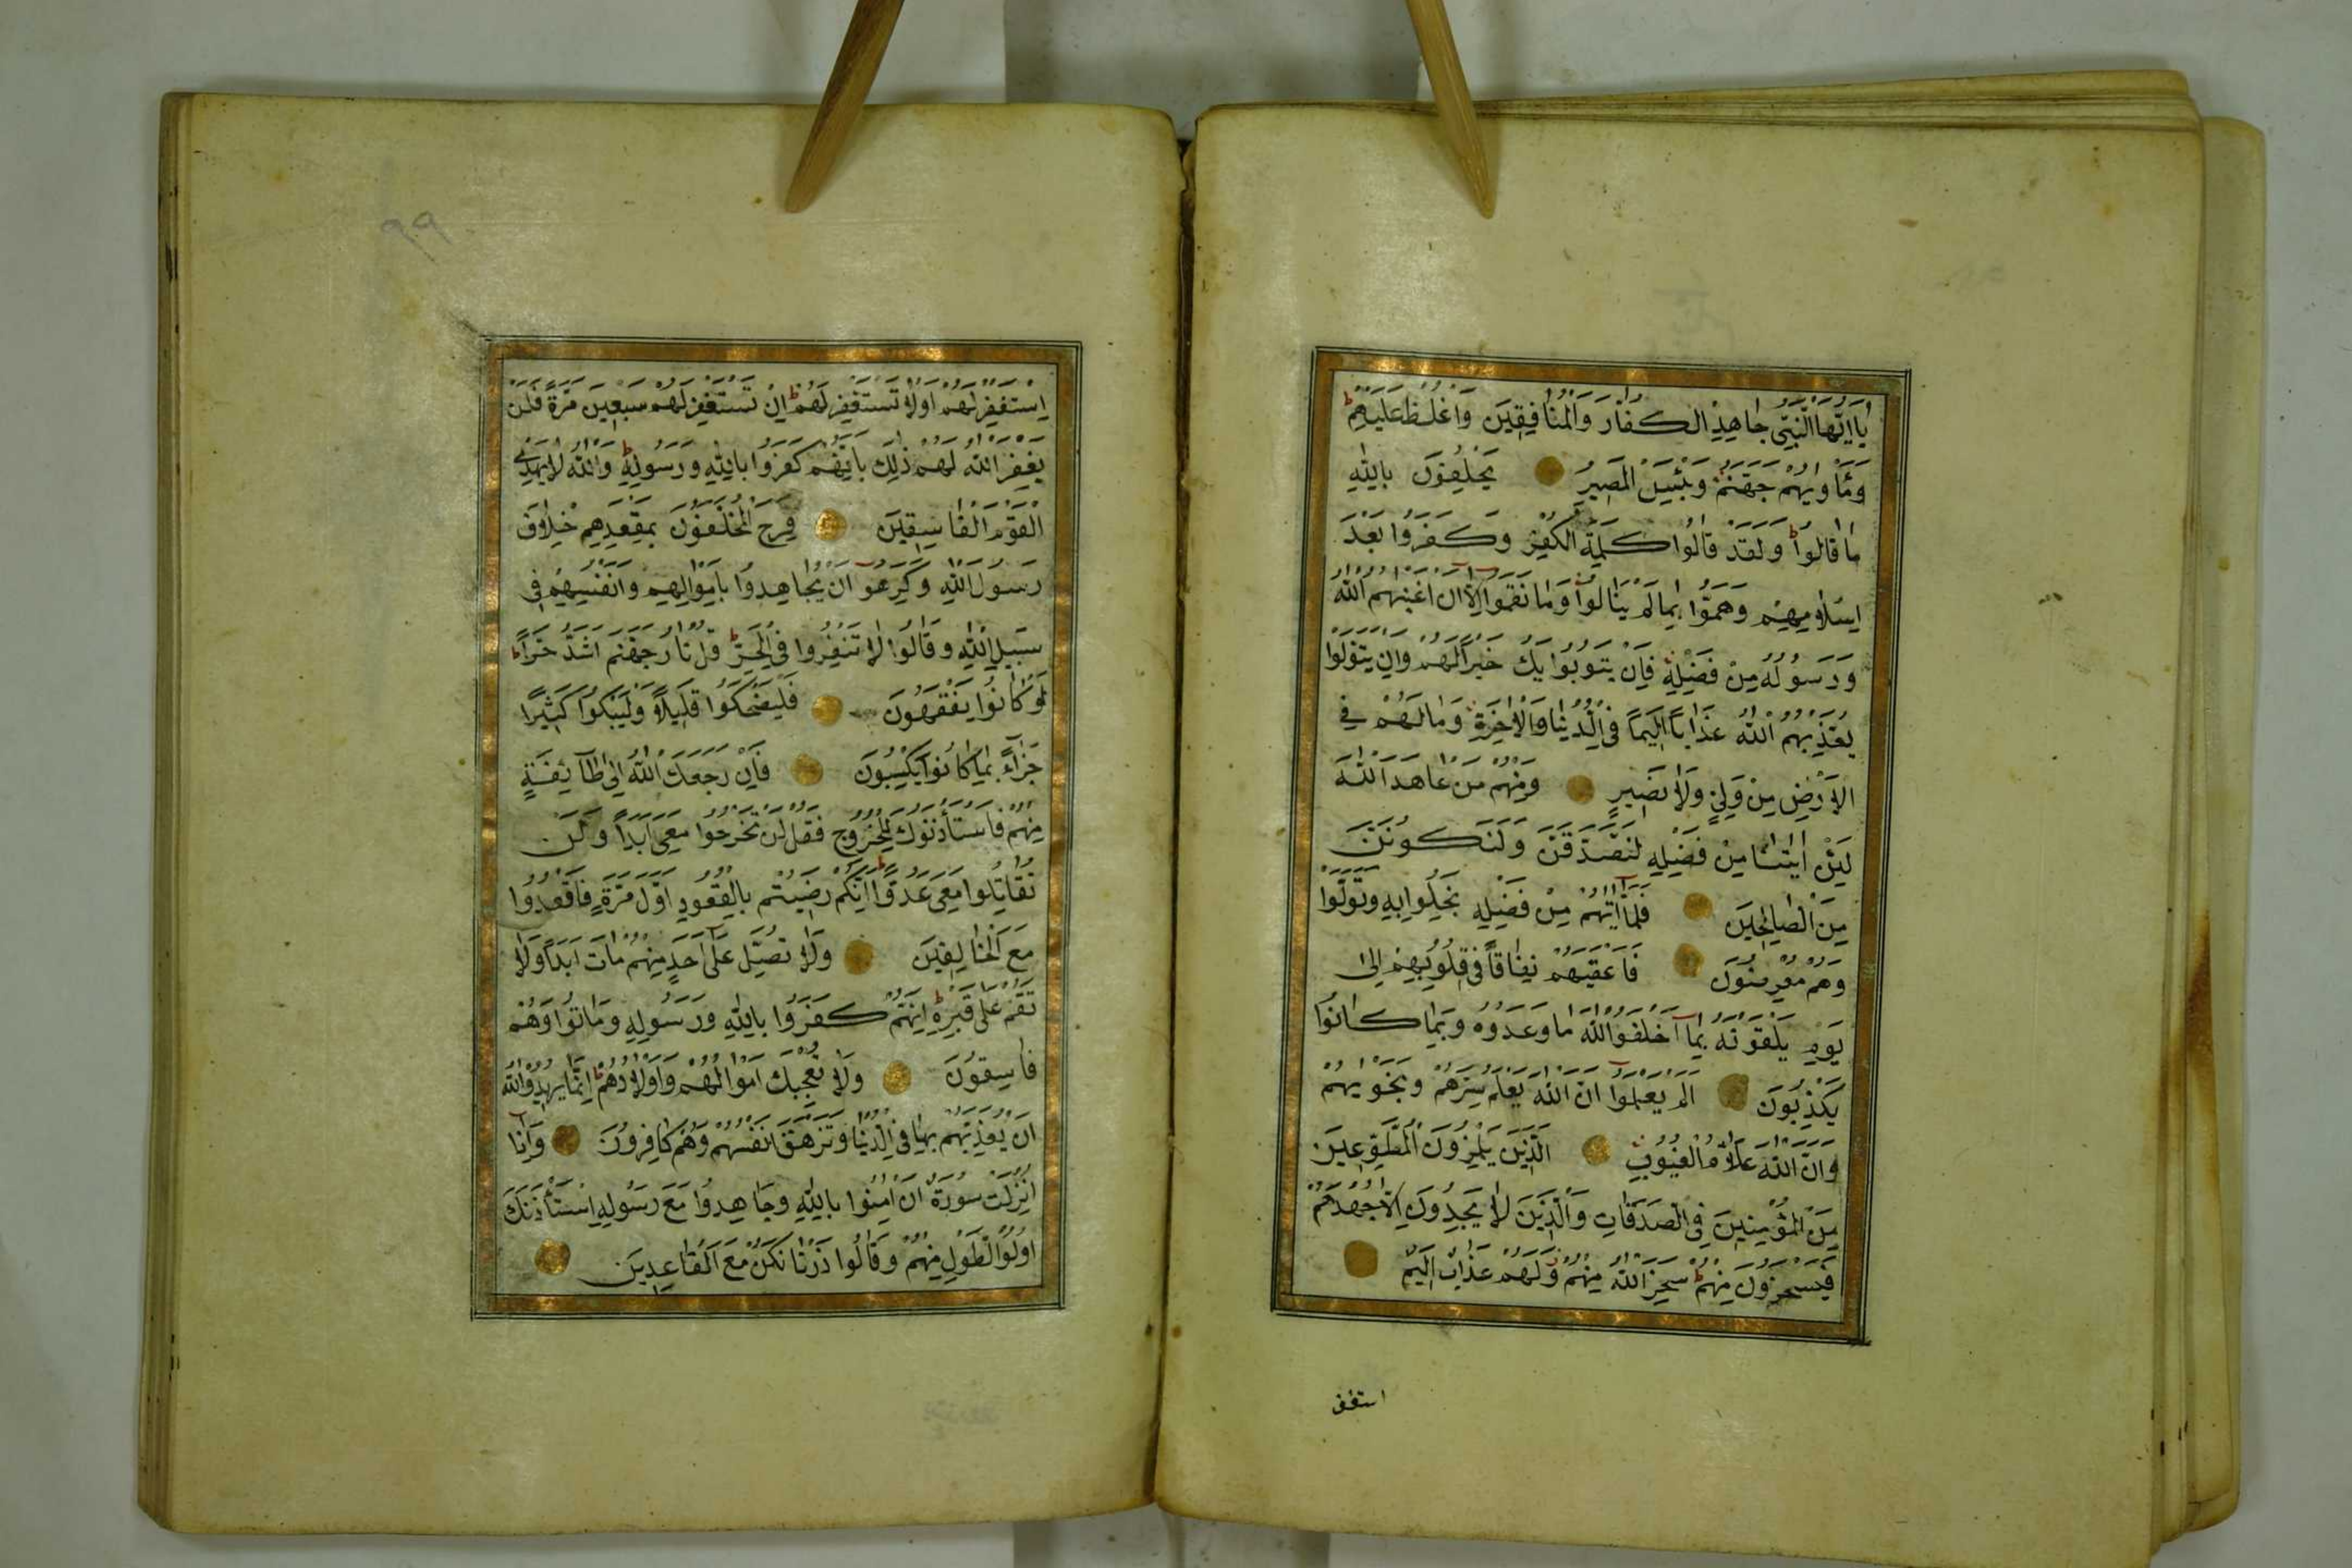 يَا اَيُّهَا النَّبِيُّ جَاهِدِ الْكُفَّارَ وَالْمُنَافِقِينَ وَاغْلُظْ عَلَيْهِمْ ط
وَمَأْوٰيهُمْ جَهَنَّمُ وَبِئْسَ الْمَصِيرُ يَحْلِفُونَ بِاللّٰهِ
مَا قَالُوا ط وَلَقَدْ قَالُوا كَلِمَةَ الْكُفْرِ وَكَفَرُوا بَعْدَ
اِسْلَامِهِمْ وَهَمُّوا بِمَا لَمْ يَنَالُوا وَمَا نَقَمُوا اِلَّا اَنْ اَغْنٰيهُمُ اللّٰهُ
وَرَسُولُهُ مِنْ فَضْلِهِ فَاِنْ يَتُوبُوا يَكُ خَيْرًا لَهُمْ وَاِنْ يَتَوَلَّوْا
يُعَذِّبْهُمُ اللّٰهُ عَذَابًا اَلِيمًا فِي الدُّنْيَا وَالْاٰخِرَةِ وَمَا لَهُمْ فِي
الْاَرْضِ مِنْ وَلِيٍّ وَلَا نَصِيرٍ وَمِنْهُمْ مَنْ عَاهَدَ اللّٰهَ
لَئِنْ اٰتٰينَا مِنْ فَضْلِهِ لَنَصَّدَّقَنَّ وَلَنَكُونَنَّ
مِنَ الصَّالِحِينَ فَلَمَّا اٰتٰيهُمْ مِنْ فَضْلِهِ بَخِلُوا بِهِ وَتَوَلَّوْا
وَهُمْ مُعْرِضُونَ فَاَعْقَبَهُمْ نِفَاقًا فِي قُلُوبِهِمْ اِلٰى
يَوْمِ يَلْقَوْنَهُ بِمَا اَخْلَفُوا اللّٰهَ مَا وَعَدُوهُ وَبِمَا كَانُوا
يَكْذِبُونَ اَلَمْ يَعْلَمُوا اَنَّ اللّٰهَ يَعْلَمُ سِرَّهُمْ وَنَجْوٰيهُمْ
وَاَنَّ اللّٰهَ عَلَّامُ الْغُيُوبِ اَلَّذِينَ يَلْمِزُونَ الْمُطَّوِّعِينَ
مِنَ الْمُؤْمِنِينَ فِي الصَّدَقَاتِ وَالَّذِينَ لَا يَجِدُونَ اِلَّا جُهْدَهُمْ
فَيَسْخَرُونَ مِنْهُمْ ط سَخِرَ اللّٰهُ مِنْهُمْ وَلَهُمْ عَذَابٌ اَلِيمٌ
استغفر
٩٩
اِسْتَغْفِرْ لَهُمْ اَوْ لَا تَسْتَغْفِرْ لَهُمْ ط اِنْ تَسْتَغْفِرْ لَهُمْ سَبْعِينَ مَرَّةً فَلَنْ
يَغْفِرَ اللّٰهُ لَهُمْ ذٰلِكَ بِاَنَّهُمْ كَفَرُوا بِاللّٰهِ وَرَسُولِهِ ط وَاللّٰهُ لَا يَهْدِي
الْقَوْمَ الْفَاسِقِينَ فَرِحَ الْمُخَلَّفُونَ بِمَقْعَدِهِمْ خِلَافَ
رَسُولِ اللّٰهِ وَكَرِهُوا اَنْ يُجَاهِدُوا بِاَمْوَالِهِمْ وَاَنْفُسِهِمْ فِي
سَبِيلِ اللّٰهِ وَقَالُوا لَا تَنْفِرُوا فِي الْحَرِّ ط قُلْ نَارُ جَهَنَّمَ اَشَدُّ حَرًّا ط
لَوْ كَانُوا يَفْقَهُونَ فَلْيَضْحَكُوا قَلِيلًا وَلْيَبْكُوا كَثِيرًا
جَزَاءً بِمَا كَانُوا يَكْسِبُونَ فَاِنْ رَجَعَكَ اللّٰهُ اِلٰى طَائِفَةٍ
مِنْهُمْ فَاسْتَأْذَنُوكَ لِلْخُرُوجِ فَقُلْ لَنْ تَخْرُجُوا مَعِيَ اَبَدًا وَلَنْ
تُقَاتِلُوا مَعِيَ عَدُوًّا ط اِنَّكُمْ رَضِيتُمْ بِالْقُعُودِ اَوَّلَ مَرَّةٍ فَاقْعُدُوا
مَعَ الْخَالِفِينَ وَلَا تُصَلِّ عَلٰى اَحَدٍ مِنْهُمْ مَاتَ اَبَدًا وَلَا
تَقُمْ عَلٰى قَبْرِهِ ط اِنَّهُمْ كَفَرُوا بِاللّٰهِ وَرَسُولِهِ وَمَاتُوا وَهُمْ
فَاسِقُونَ وَلَا تُعْجِبْكَ اَمْوَالُهُمْ وَاَوْلَادُهُمْ ط اِنَّمَا يُرِيدُ اللّٰهُ
اَنْ يُعَذِّبَهُمْ بِهَا فِي الدُّنْيَا وَتَزْهَقَ اَنْفُسُهُمْ وَهُمْ كَافِرُونَ وَاِذَا
اُنْزِلَتْ سُورَةٌ اَنْ اٰمِنُوا بِاللّٰهِ وَجَاهِدُوا مَعَ رَسُولِهِ اسْتَأْذَنَكَ
اُولُوا الطَّوْلِ مِنْهُمْ وَقَالُوا ذَرْنَا نَكُنْ مَعَ الْقَاعِدِينَ